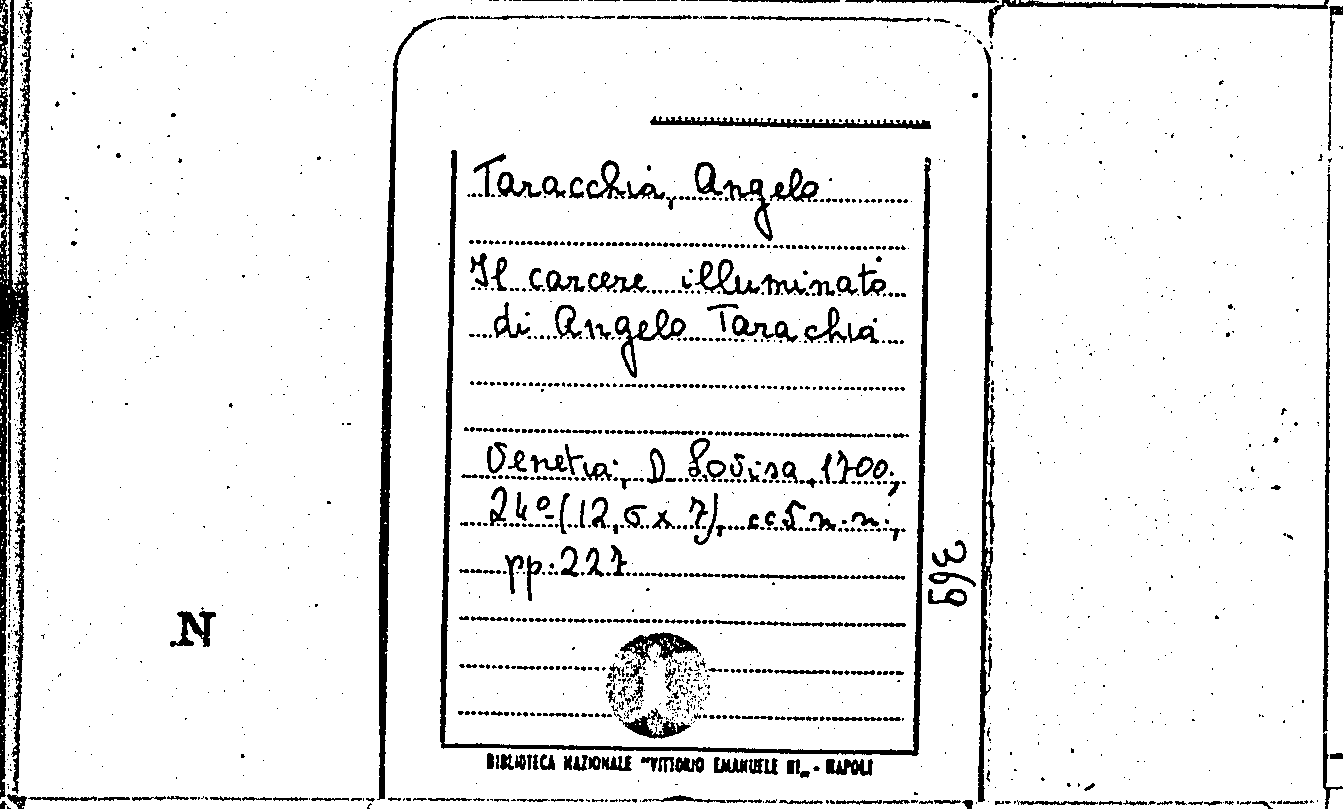 Taracchia, Angelo
Il carcere illuminato
di Angelo Tarachia
Venetia, D. Lovisa, 1700,
24º (12,5 x 7), cc 5 n.n.,
pp. 227
369
N
BIBLIOTECA NAZIONALE "VITTORIO EMANUELE III„ - NAPOLI